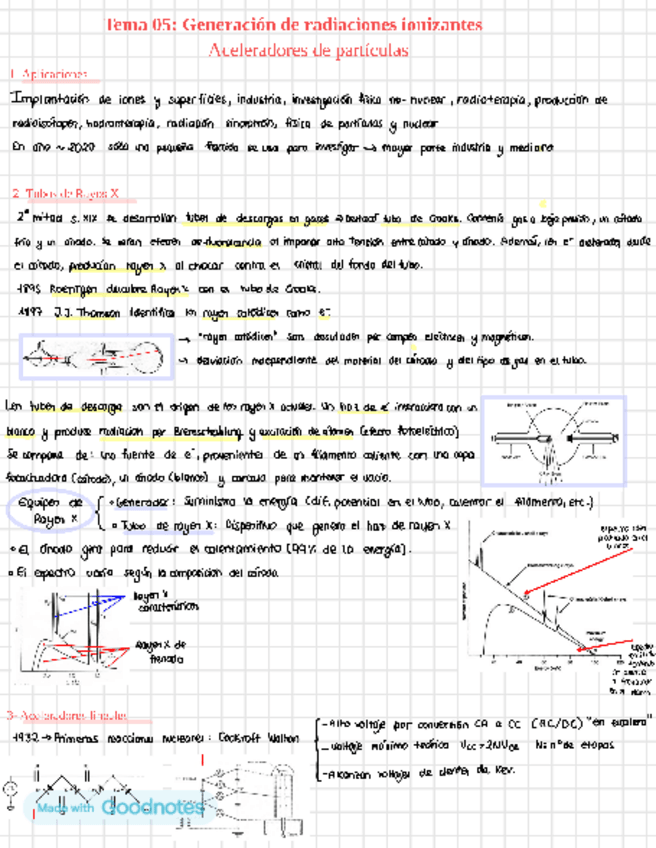 Tema 05: Generación de radiaciones ionizantes
Aceleradores de partículas
1. Aplicaciones
Implantación de iones y superficies, industria, investigación física no-nuclear, radioterapia, producción de
radioisótopos, hadronterapia, radiación sincrotrón, física de partículas y nuclear
En año ~2020 sólo una pequeña fracción se usa para investigar → mayor parte industria y medicina
2. Tubos de Rayos X
2ª mitad s. XIX se desarrollan tubos de descargas en gases → tubo de Crooks. Contenía gas a baja presión, un cátodo
frío y un ánodo. Se veían efectos de fluorescencia al imponer alta tensión entre cátodo y ánodo. Además, los e⁻ acelerados desde
el cátodo, producían rayos X al chocar contra el cristal del fondo del tubo.
1895 Roentgen descubre Rayos X con el tubo de Crooks.
1897 J.J. Thomson identifica los rayos catódicos como e⁻.
→ "rayos catódicos" son desviados por campos eléctricos y magnéticos.
→ desviación independiente del material del cátodo y del tipo de gas en el tubo.
Los tubos de descarga son el origen de los rayos X actuales. Un haz de e⁻ interacciona con un
blanco y produce radiación por Bremsstrahlung y excitación de átomos (efecto fotoeléctrico)
Se compone de: una fuente de e⁻, provenientes de un filamento caliente con una copa
focalizadora (cátodo), un ánodo (blanco) y carcasa para mantener el vacío.
Equipos de
Rayos X
• Generador: Suministra la energía (dif. potencial en el tubo, calentar el filamento, etc.)
• Tubo de rayos X: Dispositivo que genera el haz de rayos X
• El ánodo gira para reducir el calentamiento (99% de la energía).
• El espectro varía según la composición del cátodo.
Rayos X
característicos
Rayos X de
frenado
3- Aceleradores lineales
1932 → Primeras reacciones nucleares: Cockroft Walton
- Alto voltaje por conversión CA a CC (AC/DC) "en escalera"
- Voltaje máximo teórico Vcc = 2NVca N: nº de etapas
- Alcanzan voltajes de cientos de Kev.
Made with Goodnotes